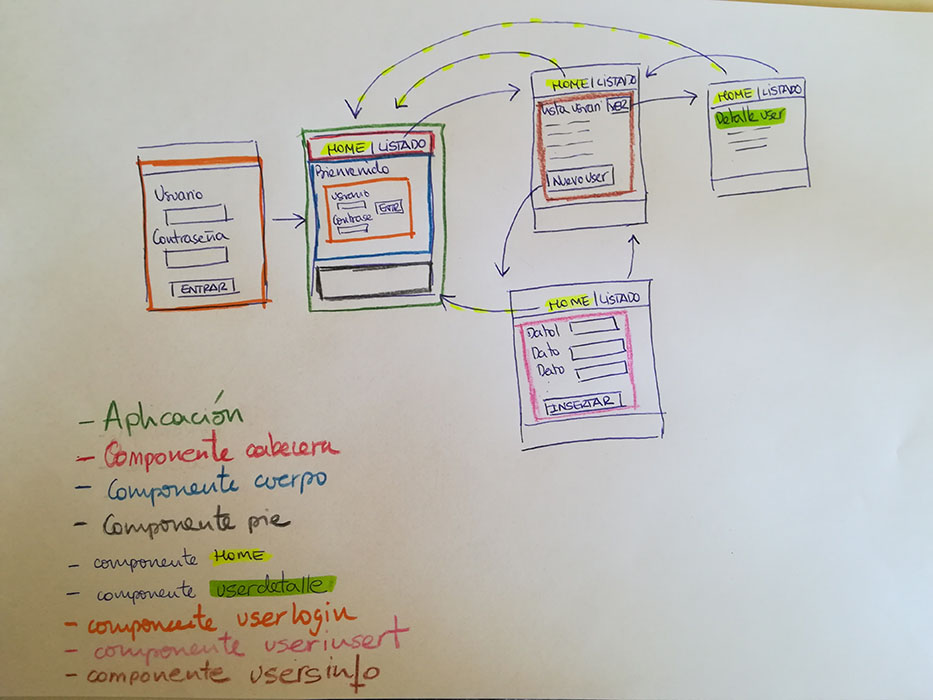 Usuario
Contraseña
ENTRAR
HOME | LISTADO
Bienvenido
usuario
Contrase
ENTR
HOME | LISTADO
lista usuari VER
Nuevo user
HOME | LISTADO
Detalle user
HOME | LISTADO
Dato1
Dato
Dato
INSERTAR
- Aplicación
- Componente cabecera
- Componente cuerpo
- Componente pie
- componente HOME
- componente userdetalle
- componente userlogin
- componente userinsert
- componente usersinfo